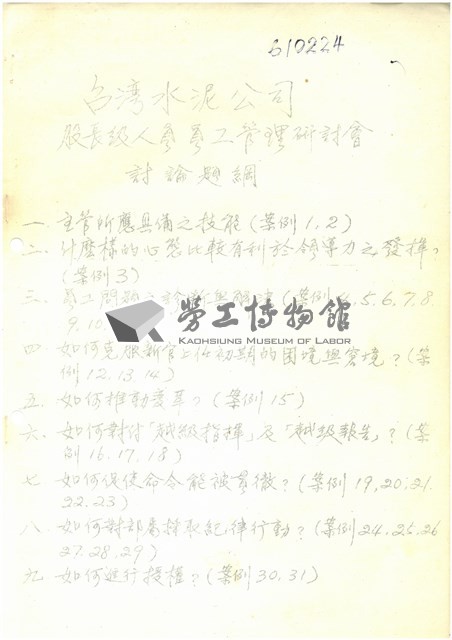 610224
台湾水泥公司
股長級人員員工管理研討會
討論題綱
一、主管所應具備之技能(案例1,2)
二、什麼樣的心態比較有利於領導力之發揮?
(案例3)
三、員工問題之診斷與解決(案例4.5.6.7.8.
9.10
勞工博物館
KAOHSIUNG MUSEUM OF LABOR
四、如何克服新官上任初期的困境與窘境?(案
例12.13.14)
五、如何推動變革?(案例15)
六、如何對付「越級指揮」及「越級報告」?(案
例16.17.18)
七、如何促使命令能被貫徹?(案例19,20,21.
22.23)
八、如何對部屬採取紀律行動?(案例24.25.26
27.28.29)
九、如何進行授權?(案例30,31)